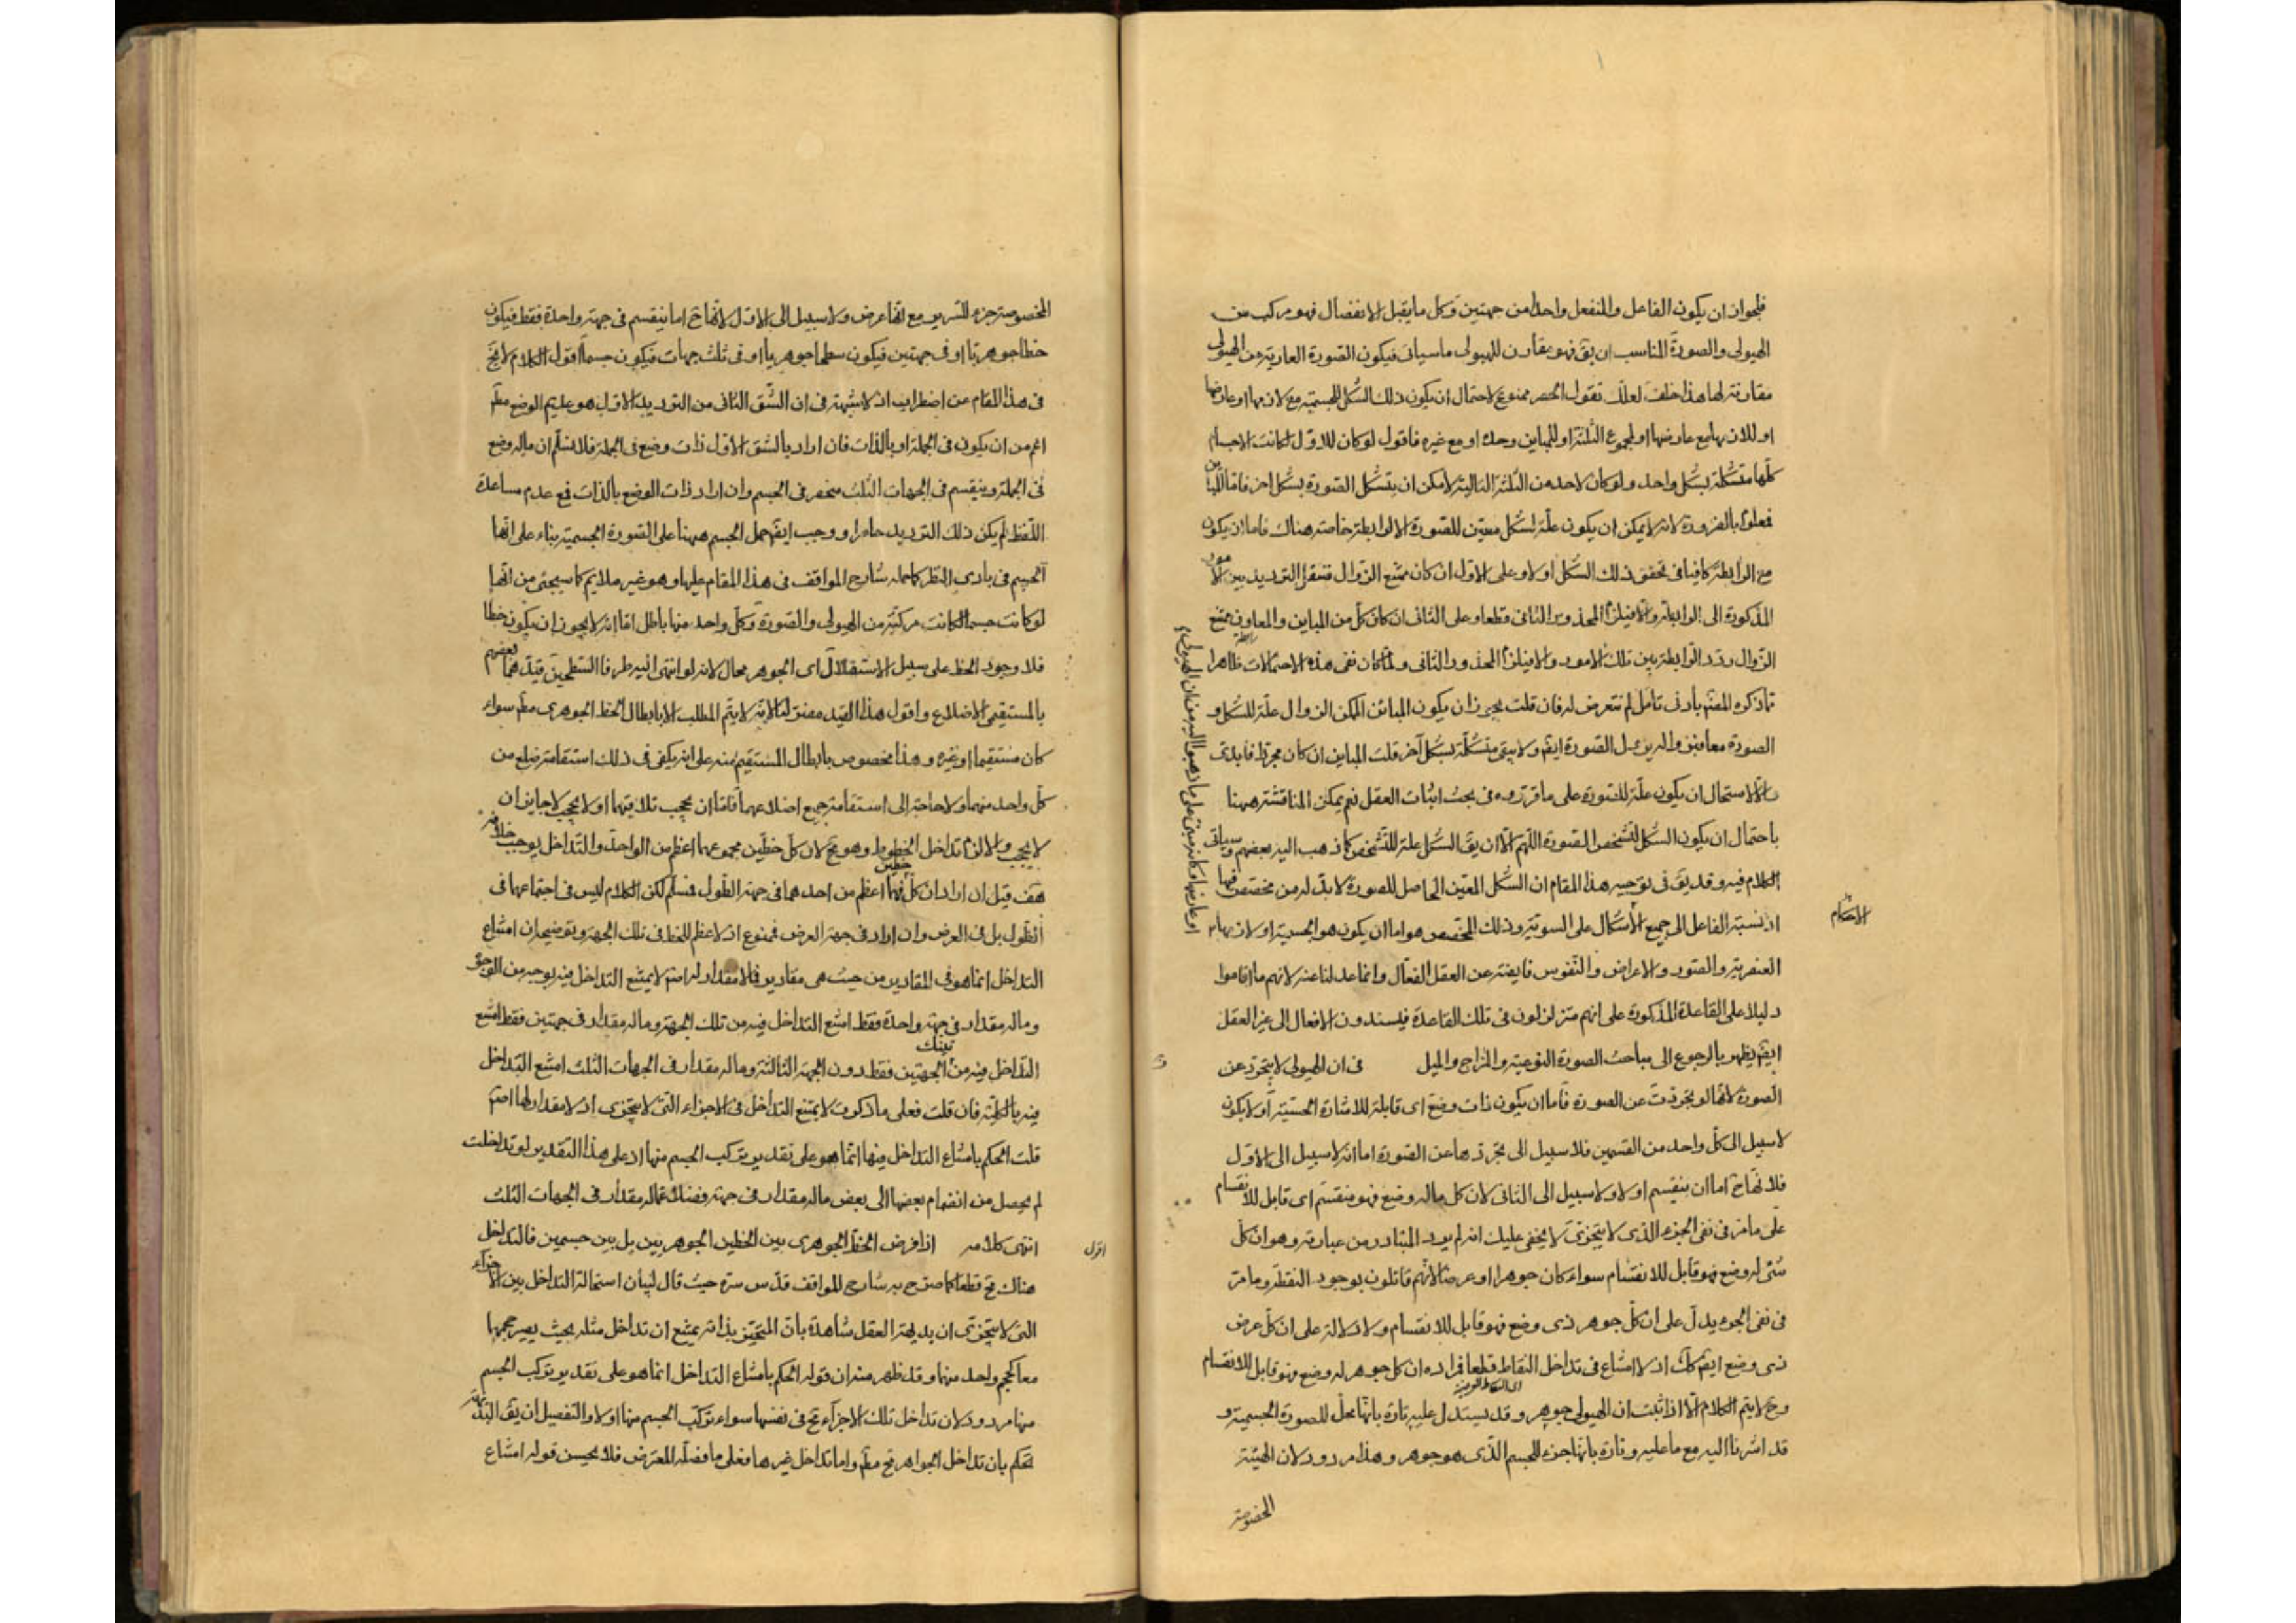 فلجواز ان يكون الفاعل والمنفعل واحدا من جهتين وكل ما يقبل الانفصال فهو مركب من
الهيولى والصورة المناسب ان يق فهو مقارن للهيولى ما سياتى فيكون الصورة العارية عن الهيولى
مقارنة لها هذا خلف لعلك تقول الحصر ممنوع لاحتمال ان يكون ذلك الشكل للجسمية مع لازمها او عارضها
او للازمها مع عارضها او لمجموع الثلثة او للمباين وحده او مع غيره فاقول لو كان للاول لكانت الاجسام
كلها متشكلة بشكل واحد ولو كان لاحد من الثلثة التالية لامكن ان يتشكل الصورة بشكل اخر فاما المباين
فمعلوم بالضرورة لانه لا يمكن ان يكون علة لشكل معين للصورة الا لرابطة خاصة هناك فاما ان يكون
مع الرابطة كافيا فى تحقق ذلك الشكل او لا وعلى الاول ان كان ممتنع الزوال فننقل الترديد بين الامور
المذكورة الى الرابطة والا فيلزم المحذور الثانى قطعا وعلى الثانى ان كان كل من المباين والمعاون ممتنع
الزوال ردد الرابطة بين تلك الامور والا فيلزم المحذور الثانى ولما كان نفى هذه الاحتمالات ظاهرا
رابطة
مما ذكره المص بادنى تامل لم نتعرض له فان قلت يجوز ان يكون المباين الممكن الزوال علة للشكل و
الصورة معا فبزواله يزول الصورة ايض ولا يبقى متشكلة بشكل آخر قلت المباين ان كان مجردا فابدى
والا لاستحال ان يكون علة للصورة على ما قرروه فى بحث اثبات العقل نعم يمكن المناقشة ههنا
باحتمال ان يكون الشكل لتشخص الصورة اللهم الا ان يق الشكل علة للتشخص كما ذهب اليه بعضهم وسياتى
الكلام فيه وقد يق فى توجيه هذا المقام ان الشكل المعين الحاصل للصورة لا بد له من مخصص فيها
اذ نسبة الفاعل الى جميع الاشكال على السوية وذلك المخصص هو اما ان يكون هو الجسمية او لازمها
او عارضها وكانه مبنى على ما ذهبوا اليه من ان الهيولى
الاجسام
العنصرية والصور والاعراض والنفوس فايضة عن العقل الفعال وانما عدلنا عنه لانهم ما اقاموا
دليلا على القاعدة المذكورة على انهم متزلزلون فى تلك القاعدة فيسندون الافعال الى غير العقل
ايض يظهر بالرجوع الى مباحث الصورة النوعية والمزاج والميل فى ان الهيولى لا يتجرد عن
الصورة لانها لو تجردت عن الصورة فاما ان يكون ذات وضع اى قابلة للاشارة الحسية او لا يكون
لا سبيل الى كل واحد من القسمين فلا سبيل الى تجردها عن الصورة اما انه لا سبيل الى الاول
فلانها ح اما ان ينقسم او لا ولا سبيل الى الثانى لان كل ما له وضع فهو منقسم اى قابل للانقسام
على ما مر فى نفى الجزء الذى لا يتجزى لا يخفى عليك انه لم يرد المتبادر من عبارته وهو ان كل
شئ له وضع فهو قابل للانقسام سواء كان جوهرا او عرضا لانهم قائلون بوجود النقطة وما مر
فى نفى الجزء يدل على ان كل جوهر ذى وضع فهو قابل للانقسام ولا دلالة على ان كل عرض
ذى وضع ايض كك اذ لا امتناع فى تداخل النقاط قطعا فمراده ان كل جوهر له وضع فهو قابل للانقسام
وح لا يتم الكلام الا اذا ثبت ان الهيولى جوهر وقد يستدل عليه تارة بانها محل للصورة الجسمية و
قد اشرنا اليه مع ما عليه وتارة بانها جزء للجسم الذى هو جوهر وهذا مردود لان الهيئة
المخصوصة
المخصوصة جزء للسرير مع انها عرض ولا سبيل الى الاول لانها ح اما ينقسم فى جهة واحدة فقط فيكون
خطا جوهريا او فى جهتين فيكون سطحا جوهريا او فى ثلث جهات فيكون جسما اقول الكلام لا يخ
فى هذا المقام عن اضطراب اذ لا شبهة فى ان الشق الثانى من الترديد الاول هو عديم الوضع مط
اعم من ان يكون فى الجملة او بالذات فان اراد بالشق الاول ذات وضع فى الجملة فلا نسلم ان ما له وضع
فى الجملة وينقسم فى الجهات الثلث منحصر فى الجسم وان اراد ذات الوضع بالذات فمع عدم مساعدة
اللفظ لم يكن ذلك الترديد حاصرا ووجب ايض حمل الجسم ههنا على الصورة الجسمية بناء على انها
الجسم فى بادى النظر كما حمله شارح المواقف فى هذا المقام عليها وهو غير ملايم كما سيجئ من انها
لو كانت جسما لكانت مركبة من الهيولى والصورة وكل واحد منها باطل اما انه لا يجوز ان يكون خطا
فلا وجود الخط على سبيل الاستقلال اى الجوهر محال لانه لو انتهى اليه طرفا السطحين قيدهما بعضهم
بالمستقيمى الاضلاع واقول هذا القيد مضر لنا لانه لا يتم المطلب الا بابطال الخط الجوهرى مط سواء
كان مستقيما او غيره وهذا مخصوص بابطال المستقيم منه على انه يكفى فى ذلك استقامة ضلع من
كل واحد منهما ولا حاجة الى استقامة جميع اضلاعهما فاما ان يحجب تلاقيهما او لا يحجب لا جايز ان
لا يحجب والا لزم تداخل الخطوط وهو مح لان كل خطين مجموعهما اعظم من الواحد والتداخل يوجب خلافه
هف قيل ان اراد ان كل خطين فهما اعظم من احدهما فى جهة الطول فمسلم لكن الكلام ليس فى اجتماعهما فى
الطول بل فى العرض وان اراد فى جهة العرض فممنوع اذ لا عظم للخط فى تلك الجهة وتوضيحه ان امتناع
التداخل انما هو فى المقادير من حيث هى مقادير فما لا مقدار له اصلا لا يمتنع التداخل فيه بوجه من الوجوه
وما له مقدار فى جهة واحدة فقط امتنع التداخل فيه من تلك الجهة وما له مقدار فى جهتين فقط امتنع
التداخل فيه من تينك الجهتين فقط دون الجهة الثالثة وما له مقدار فى الجهات الثلث امتنع التداخل
فيه بالكلية فان قلت فعلى ما ذكرت لا يمتنع التداخل فى الاجزاء التى لا يتجزى اذ لا مقدار لها اصلا
قلت الحكم بامتناع التداخل فيها انما هو على تقدير تركب الجسم منها اذ على هذا التقدير لو تداخلت
لم يحصل من انضمام بعضها الى بعض ما له مقدار فى جهة فضلا عما له مقدار فى الجهات الثلث
انتهى كلامه اذا فرض الخط الجوهرى بين الخطين الجوهريين بل بين جسمين فالتداخل
اقول
هناك مح قطعا كما صرح به شارح المواقف قدس سره حيث قال لبيان استحالة التداخل بين الاجزاء
التى لا يتجزى ان بديهة العقل شاهدة بان المتحيز بذاته يمتنع ان تداخل مثله بحيث يصير حجمها
معا كحجم واحد منها وقد ظهر منه ان قوله الحكم بامتناع التداخل انما هو على تقدير تركب الجسم
منها مردود لان تداخل تلك الاجزاء مح فى نفسها سواء تركب الجسم منها او لا والتفصيل ان يق البديهة
تحكم بان تداخل الجواهر مح مط واما تداخل غيرها فعلى ما فصله المعترض فلا يحسن قوله امتناع